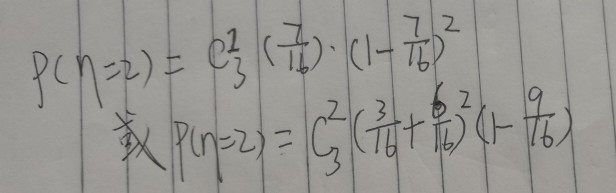 P(η=2) = C₃¹ (7/16)·(1-7/16)²
或 P(η=2) = C₃² (3/16+6/16)² (1-9/16)